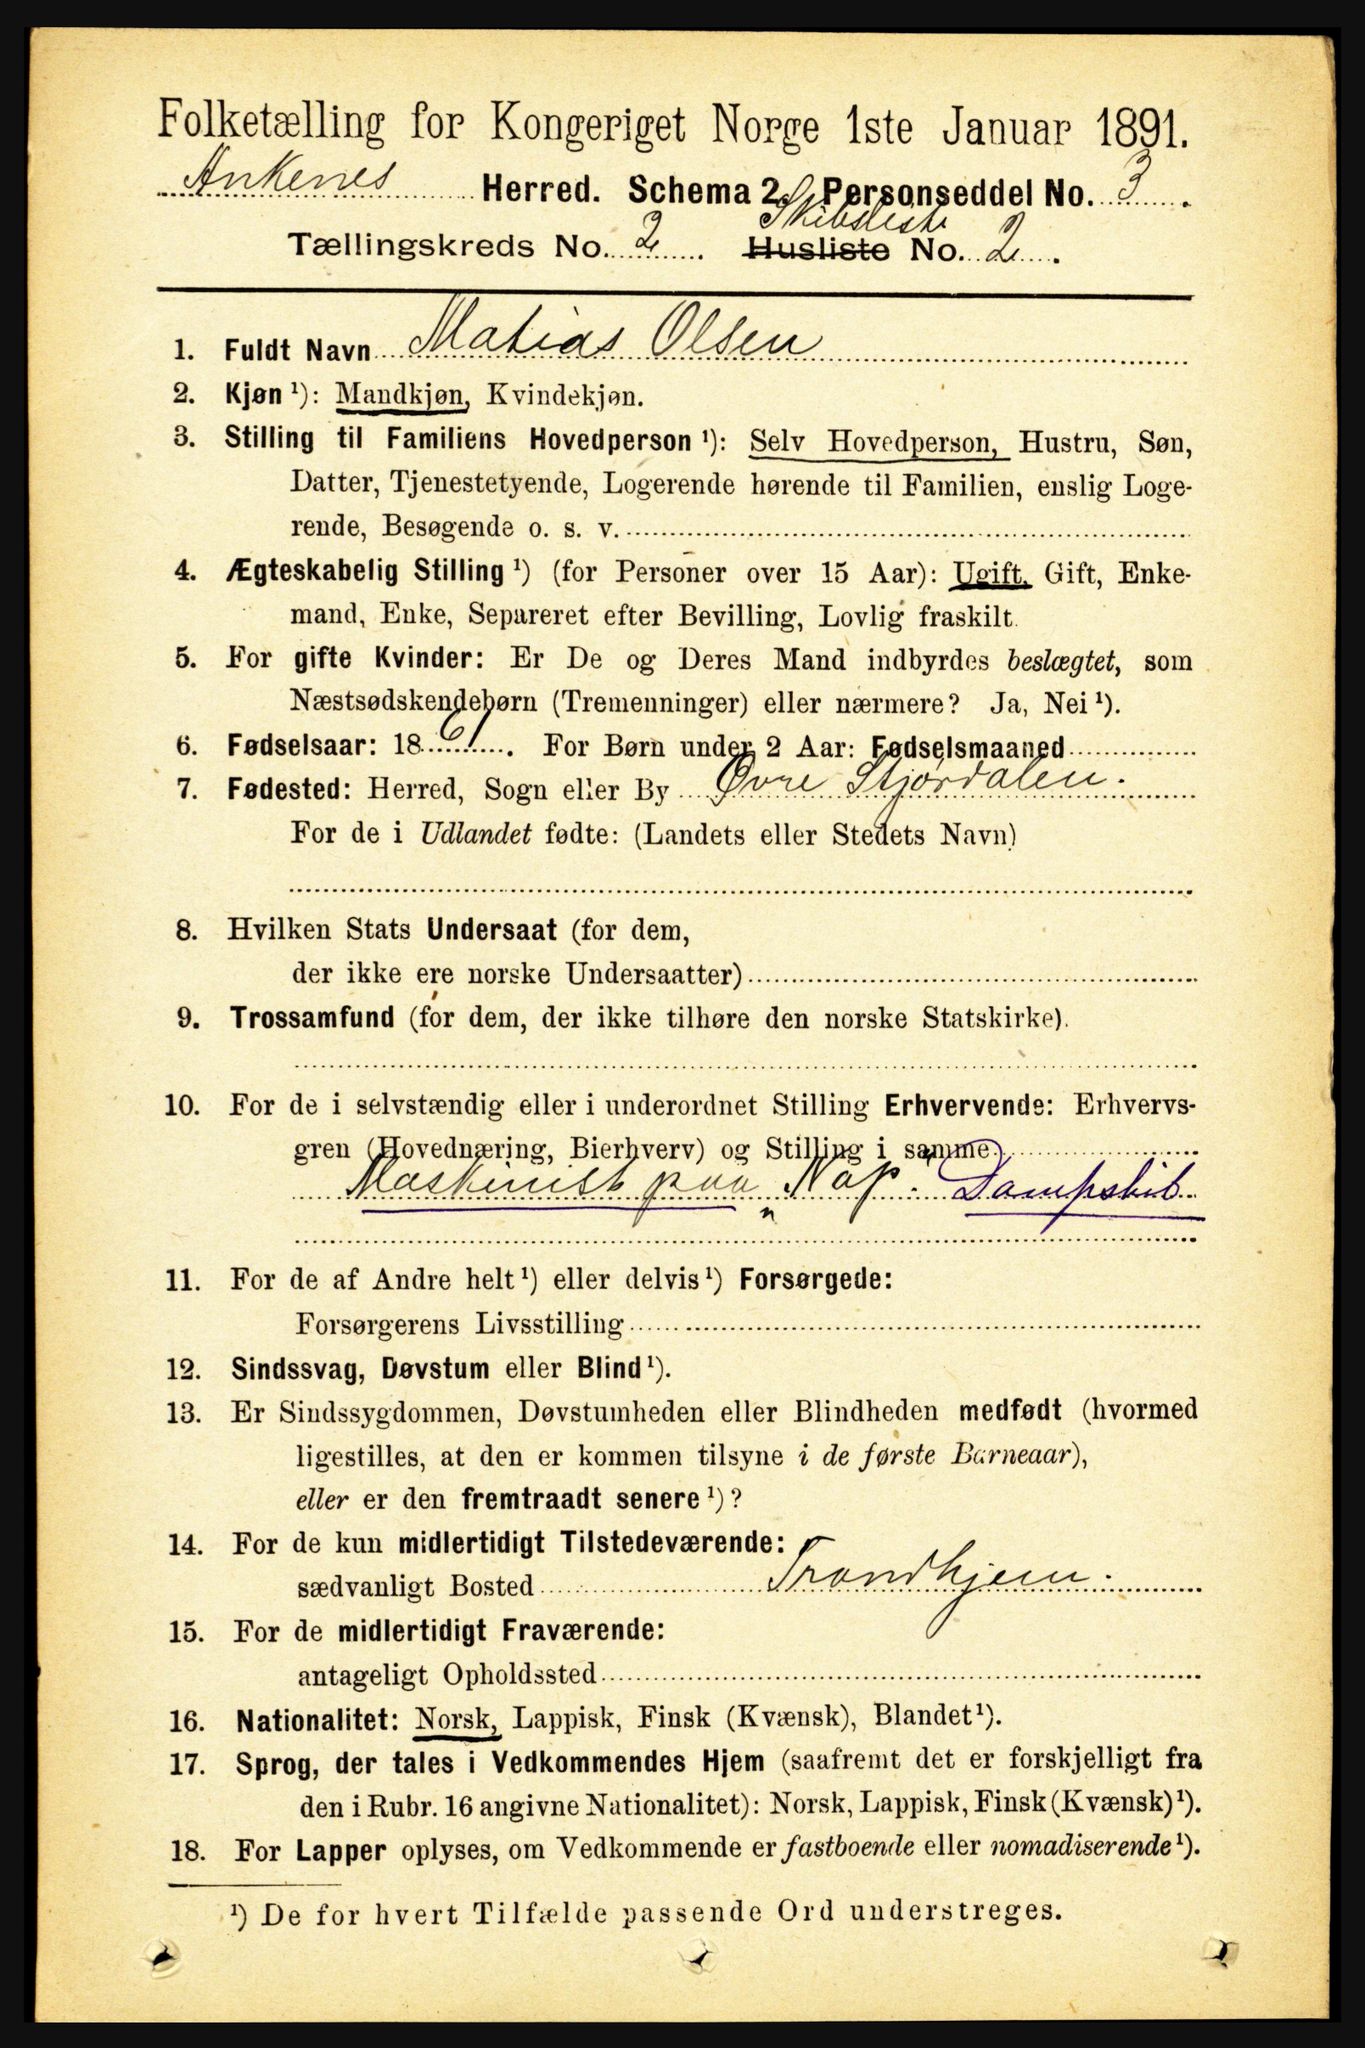 Folketælling for Kongeriget Norge 1ste Januar 1891.
Ankenes Herred. Schema 2. Personseddel No. 3.
Skibsliste
Tællingskreds No. 2. Husliste No. 2.
1. Fuldt Navn Matias Olsen
2. Kjøn ¹): Mandkjøn, Kvindekjøn.
3. Stilling til Familiens Hovedperson ¹): Selv Hovedperson, Hustru, Søn,
Datter, Tjenestetyende, Logerende hørende til Familien, enslig Loge-
rende, Besøgende o. s. v.
4. Ægteskabelig Stilling ¹) (for Personer over 15 Aar): Ugift, Gift, Enke-
mand, Enke, Separeret efter Bevilling, Lovlig fraskilt.
5. For gifte Kvinder: Er De og Deres Mand indbyrdes beslægtet, som
Næstsødskendebørn (Tremenninger) eller nærmere? Ja, Nei ¹).
6. Fødselsaar: 1861. For Børn under 2 Aar: Fødselsmaaned
7. Fødested: Herred, Sogn eller By Øvre Stjørdalen.
For de i Udlandet fødte: (Landets eller Stedets Navn)
8. Hvilken Stats Undersaat (for dem,
der ikke ere norske Undersaatter)
9. Trossamfund (for dem, der ikke tilhøre den norske Statskirke).
10. For de i selvstændig eller i underordnet Stilling Erhvervende: Erhvervs-
gren (Hovednæring, Bierhverv) og Stilling i samme
Maskinist paa „Nap". Dampskib
11. For de af Andre helt ¹) eller delvis ¹) Forsørgede:
Forsørgerens Livsstilling
12. Sindssvag, Døvstum eller Blind ¹).
13. Er Sindssygdommen, Døvstumheden eller Blindheden medfødt (hvormed
ligestilles, at den er kommen tilsyne i de første Barneaar),
eller er den fremtraadt senere ¹)?
14. For de kun midlertidigt Tilstedeværende:
sædvanligt Bosted Trondhjem.
15. For de midlertidigt Fraværende:
antageligt Opholdssted
16. Nationalitet: Norsk, Lappisk, Finsk (Kvænsk), Blandet ¹).
17. Sprog, der tales i Vedkommendes Hjem (saafremt det er forskjelligt fra
den i Rubr. 16 angivne Nationalitet): Norsk, Lappisk, Finsk (Kvænsk) ¹).
18. For Lapper oplyses, om Vedkommende er fastboende eller nomadiserende ¹).
¹) De for hvert Tilfælde passende Ord understreges.